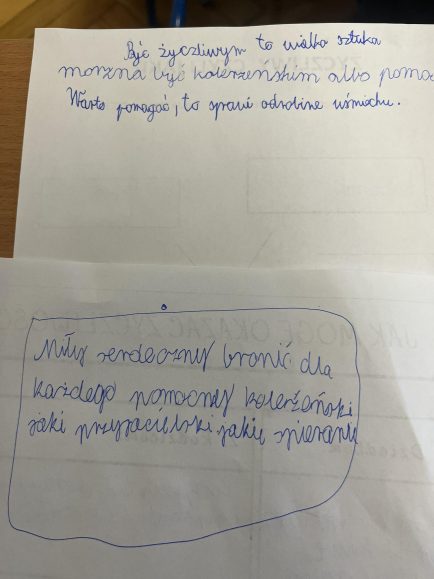 Być życzliwym to wielka sztuka
można być koleżeńskim albo pomoc
Warto pomagać, to sprawi odrobine uśmiechu.
Miły serdeczny bronić dla
każdego pomocny koleżeński
jaki przyjacielski jakiś